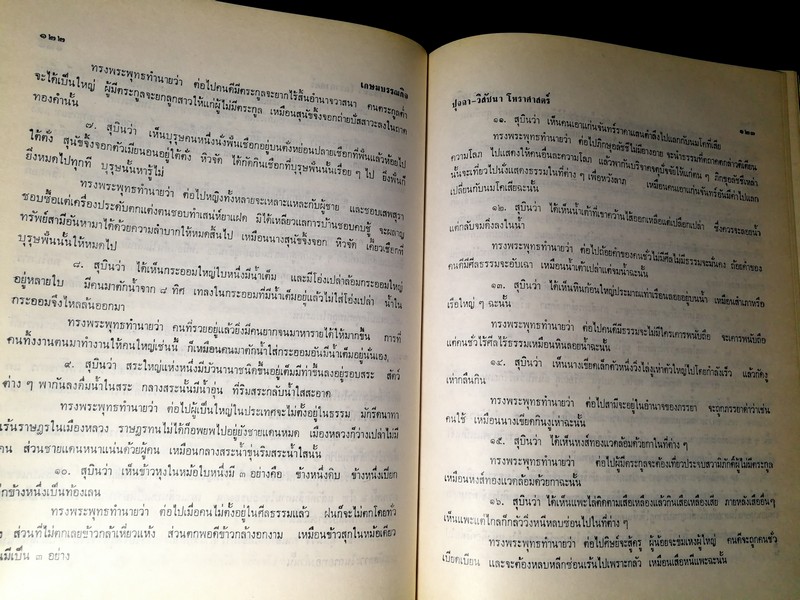 ๑๒๒
เกษมบรรณกิจ
ทรงพระพุทธทำนายว่า ต่อไปคนดีมีตระกูลจะยากไร้สิ้นอำนาจวาสนา คนตระกูลต่ำ
จะได้เป็นใหญ่ ผู้มีตระกูลจะยกลูกสาวให้แก่ผู้ไม่มีตระกูล เหมือนสุนัขจิ้งจอกถ่ายปัสสาวะลงในถาด
ทองคำนั้น
๗. สุบินว่า เห็นบุรุษคนหนึ่งนั่งฟั่นเชือกอยู่บนตั่งหย่อนปลายเชือกที่ฟั่นแล้วห้อยไป
ใต้ตั่ง สุนัขจิ้งจอกตัวเมียนอนอยู่ใต้ตั่ง หิวจัด ได้กัดกินเชือกที่บุรุษฟั่นนั้นเรื่อย ๆ ไป ยิ่งฟั่นก็
ยิ่งหมดไปทุกที บุรุษนั้นหารู้ไม่
ทรงพระพุทธทำนายว่า ต่อไปหญิงทั้งหลายจะเหลาะแหละกับผู้ชาย และชอบเสพสุรา
ชอบซื้อแต่เครื่องประดับตกแต่งตนชอบทำเสน่ห์ยาแฝด มิได้เหลียวแลการบ้านชอบคบชู้ จะผลาญ
ทรัพย์สามีอันหามาได้ด้วยความลำบากให้หมดสิ้นไป เหมือนนางสุนัขจิ้งจอก หิวจัด เคี้ยวเชือกที่
บุรุษฟั่นนั้นให้หมดไป
๘. สุบินว่า ได้เห็นกระออมใหญ่ใบหนึ่งมีน้ำเต็ม และมีโอ่งเปล่าล้อมกระออมใหญ่
อยู่หลายใบ มีคนมาตักน้ำจาก ๘ ทิศ เทลงในกระออมที่มีน้ำเต็มอยู่แล้วไม่ใส่โอ่งเปล่า น้ำใน
กระออมจึงไหลล้นออกมา
ทรงพระพุทธทำนายว่า คนที่รวยอยู่แล้วยิ่งมีคนยากจนมาหารายได้ให้มากขึ้น การที่
คนทิ้งงานตนมาทำงานให้คนใหญ่เช่นนี้ ก็เหมือนคนมาตักน้ำใส่กระออมอันมีน้ำเต็มอยู่นั่นเอง.
๙. สุบินว่า สระใหญ่แห่งหนึ่งมีบัวนานาชนิดขึ้นอยู่เต็มมีท่าขึ้นลงอยู่รอบสระ สัตว์
ต่าง ๆ พากันลงดื่มน้ำในสระ กลางสระนั้นมีน้ำขุ่น ที่ริมสระกลับน้ำใสสะอาด
ทรงพระพุทธทำนายว่า ต่อไปผู้เป็นใหญ่ในประเทศจะไม่ตั้งอยู่ในธรรม มักรีดนาทา
เร้นราษฎรในเมืองหลวง ราษฎรทนไม่ได้ก็อพยพไปอยู่ยังชายแดนหมด เมืองหลวงก็ว่างเปล่าไม่มี
คน ส่วนชายแดนหนาแน่นด้วยผู้คน เหมือนกลางสระน้ำขุ่นริมสระน้ำใสนั้น
๑๐. สุบินว่า เห็นข้าวหุงในหม้อใบหนึ่งมี ๓ อย่างคือ ข้างหนึ่งดิบ ข้างหนึ่งเปียก
อีกข้างหนึ่งเป็นท้องเลน
ทรงพระพุทธทำนายว่า ต่อไปเมื่อคนไม่ตั้งอยู่ในศีลธรรมแล้ว ฝนก็จะไม่ตกโดยทั่ว
ส่วนที่ไม่ตกเลยข้าวกล้าเหี่ยวแห้ง ส่วนตกพอดีข้าวกล้างอกงาม เหมือนข้าวสุกในหม้อเดียว
เป็น ๓ อย่าง
ปุจฉา-วิสัชนา โหราศาสตร์
๑๒๓
๑๑. สุบินว่า เห็นคนเอาแก่นจันทร์ราคาแสนตำลึงไปแลกกับนมโคที่เสีย
ทรงพระพุทธทำนายว่า ต่อไปภิกษุอลัชชีไม่มียางอาย จะนำธรรมที่ตถาคตกล่าวติเตียน
ความโลภ ไปแสดงให้คนอื่นละความโลภ แล้วพากันบริจาคจตุปัจจัยให้แก่ตน ๆ ภิกษุอลัชชีเหล่า
นั้นจะเที่ยวไปนั่งแสดงธรรมในที่ต่าง ๆ เพื่อหวังลาภ เหมือนคนเอาแก่นจันทร์อันมีค่าไปแลก
เปลี่ยนกับนมโคเสียฉะนั้น
๑๒. สุบินว่า ได้เห็นน้ำเต้าที่เขาคว้านไส้ออกเหลือแต่เปลือกเปล่า ซึ่งควรจะลอยน้ำ
แต่กลับจมดิ่งลงในน้ำ
ทรงพระพุทธทำนายว่า ต่อไปถ้อยคำของคนชั่วไม่มีศีลไม่มีธรรมจะมั่นคง ถ้อยคำของ
คนที่มีศีลธรรมจะอับเฉา เหมือนน้ำเต้าเปล่าแต่จมน้ำฉะนั้น
๑๓. สุบินว่า ได้เห็นหินก้อนใหญ่ประมาณเท่าเรือนลอยอยู่บนน้ำ เหมือนสำเภาหรือ
เรือใหญ่ ๆ ฉะนั้น
ทรงพระพุทธทำนายว่า ต่อไปคนดีมีธรรมจะไม่มีใครเคารพนับถือ จะเคารพนับถือ
แต่คนชั่วไร้ศีลไร้ธรรมเหมือนหินลอยน้ำฉะนั้น
๑๔. สุบินว่า ได้เห็นนางเขียดเล็กตัวหนึ่งวิ่งไล่งูเห่าตัวใหญ่ไปโดยกำลังเร็ว แล้วกัดงู
เห่ากลืนกิน
ทรงพระพุทธทำนายว่า ต่อไปสามีจะอยู่ในอำนาจของภรรยา จะถูกภรรยาด่าว่าเช่น
คนใช้ เหมือนนางเขียดกินงูเห่าฉะนั้น
๑๕. สุบินว่า ได้เห็นหงส์ทองแวดล้อมด้วยกาในที่ต่าง ๆ
ทรงพระพุทธทำนายว่า ต่อไปผู้มีตระกูลจะต้องเที่ยวประจบสวามิภักดิ์ผู้ไม่มีตระกูล
เหมือนหงส์ทองแวดล้อมด้วยกาฉะนั้น
๑๖. สุบินว่า ได้เห็นแพะไล่ติดตามเสือเหลืองแล้วกินเสือเหลืองเสีย ภายหลังเสืออื่นๆ
เห็นแพะแต่ไกลก็กลัววิ่งหนีหลบซ่อนไปในที่ต่าง ๆ
ทรงพระพุทธทำนายว่า ต่อไปศิษย์จะสู้ครู ผู้น้อยจะข่มเหงผู้ใหญ่ คนดีจะถูกคนชั่ว
เบียดเบียน และจะต้องหลบหลีกซ่อนเร้นไปเพราะกลัว เหมือนเสือหนีแพะฉะนั้น